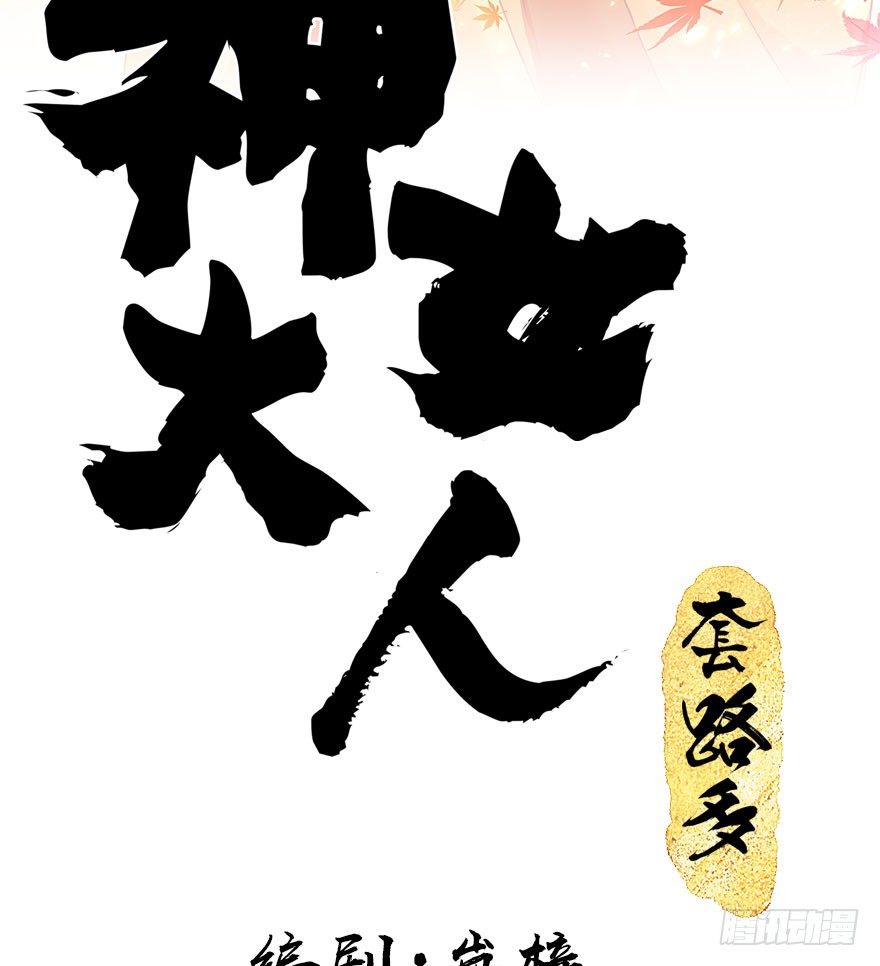 神女
大人
套路多
编剧·
腾讯动漫